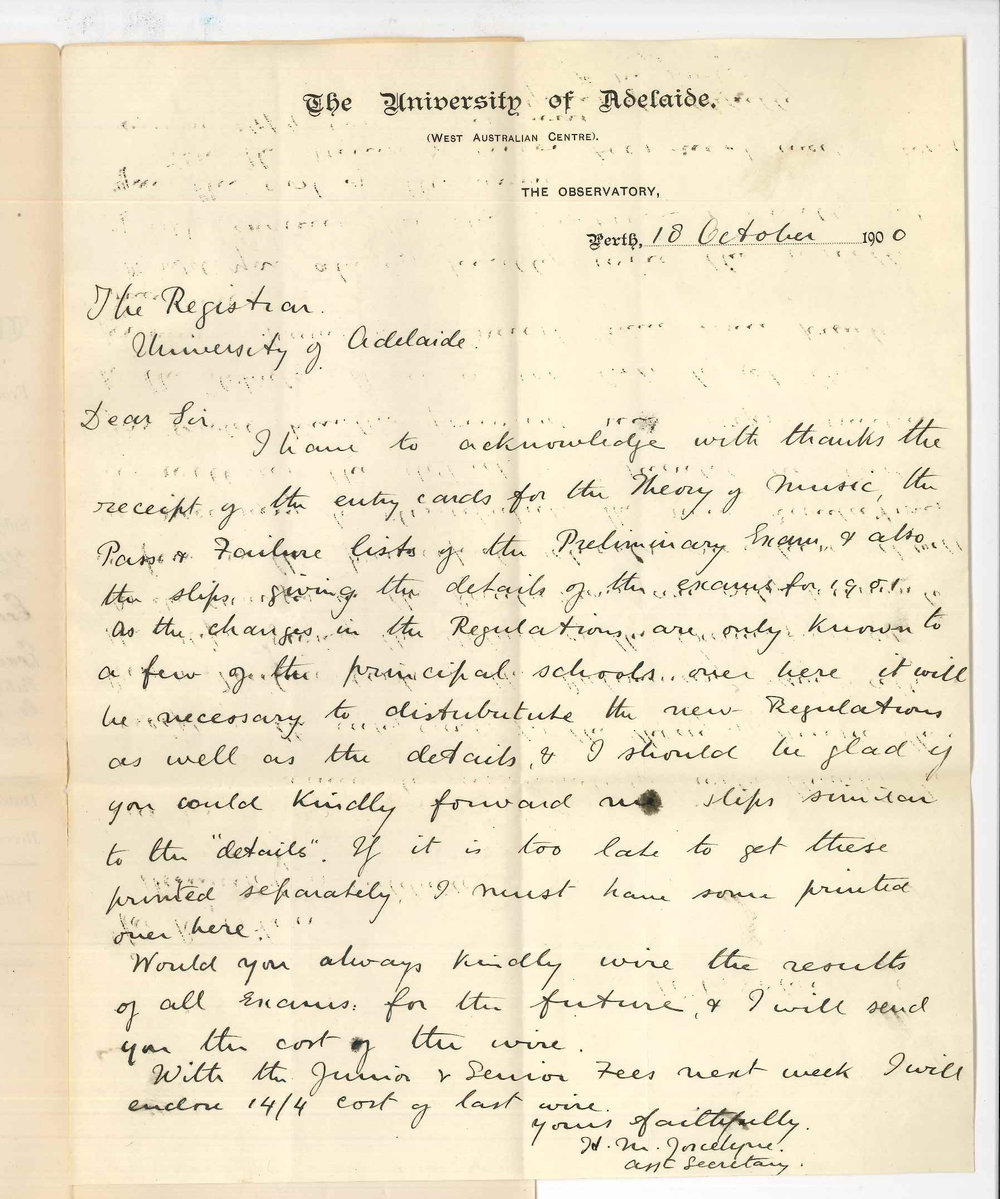 The University of Adelaide.
(West Australian Centre).
THE OBSERVATORY,
Perth, 18 October 1900
The Registrar.
University of Adelaide.
Dear Sir,
I have to acknowledge with thanks the
receipt of the entry cards for the Theory of Music, the
Pass & Failure lists of the Preliminary Exam, & also
the slips giving the details of the exams for 1901.
As the changes in the Regulations are only known to
a few of the principal schools over here it will
be necessary to distributute the new Regulations
as well as the details, & I should be glad if
you could kindly forward me slips similar
to the "details". If it is too late to get these
printed separately, I must have some printed
over here.
Would you always kindly wire the results
of all Exams: for the future, & I will send
you the cost of the wire.
With the Junior & Senior Fees next week I will
enclose 14/4 cost of last wire.
yours faithfully.
H. M. Joscelyne.
asst Secretary.